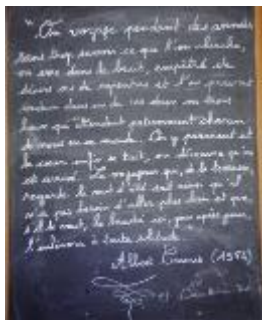 " On voyage pendant des années
sans trop savoir ce que l'on cherche,
on erre dans le bruit, empêtré de
désirs ou de repentirs et l'on parvient
soudain dans un de ces deux ou trois
lieux qui attendent patiemment chacun
de nous en ce monde. On y parvient et
le cœur enfin se tait, on découvre qu'on
est arrivé. Le voyageur qui, de la terrasse,
regarde la nuit d'été sait ainsi qu'il
n'a pas besoin d'aller plus loin et que,
s'il le veut, la beauté ici, jour après jour,
l'enlèvera à toute solitude.
Albert Camus (1952)